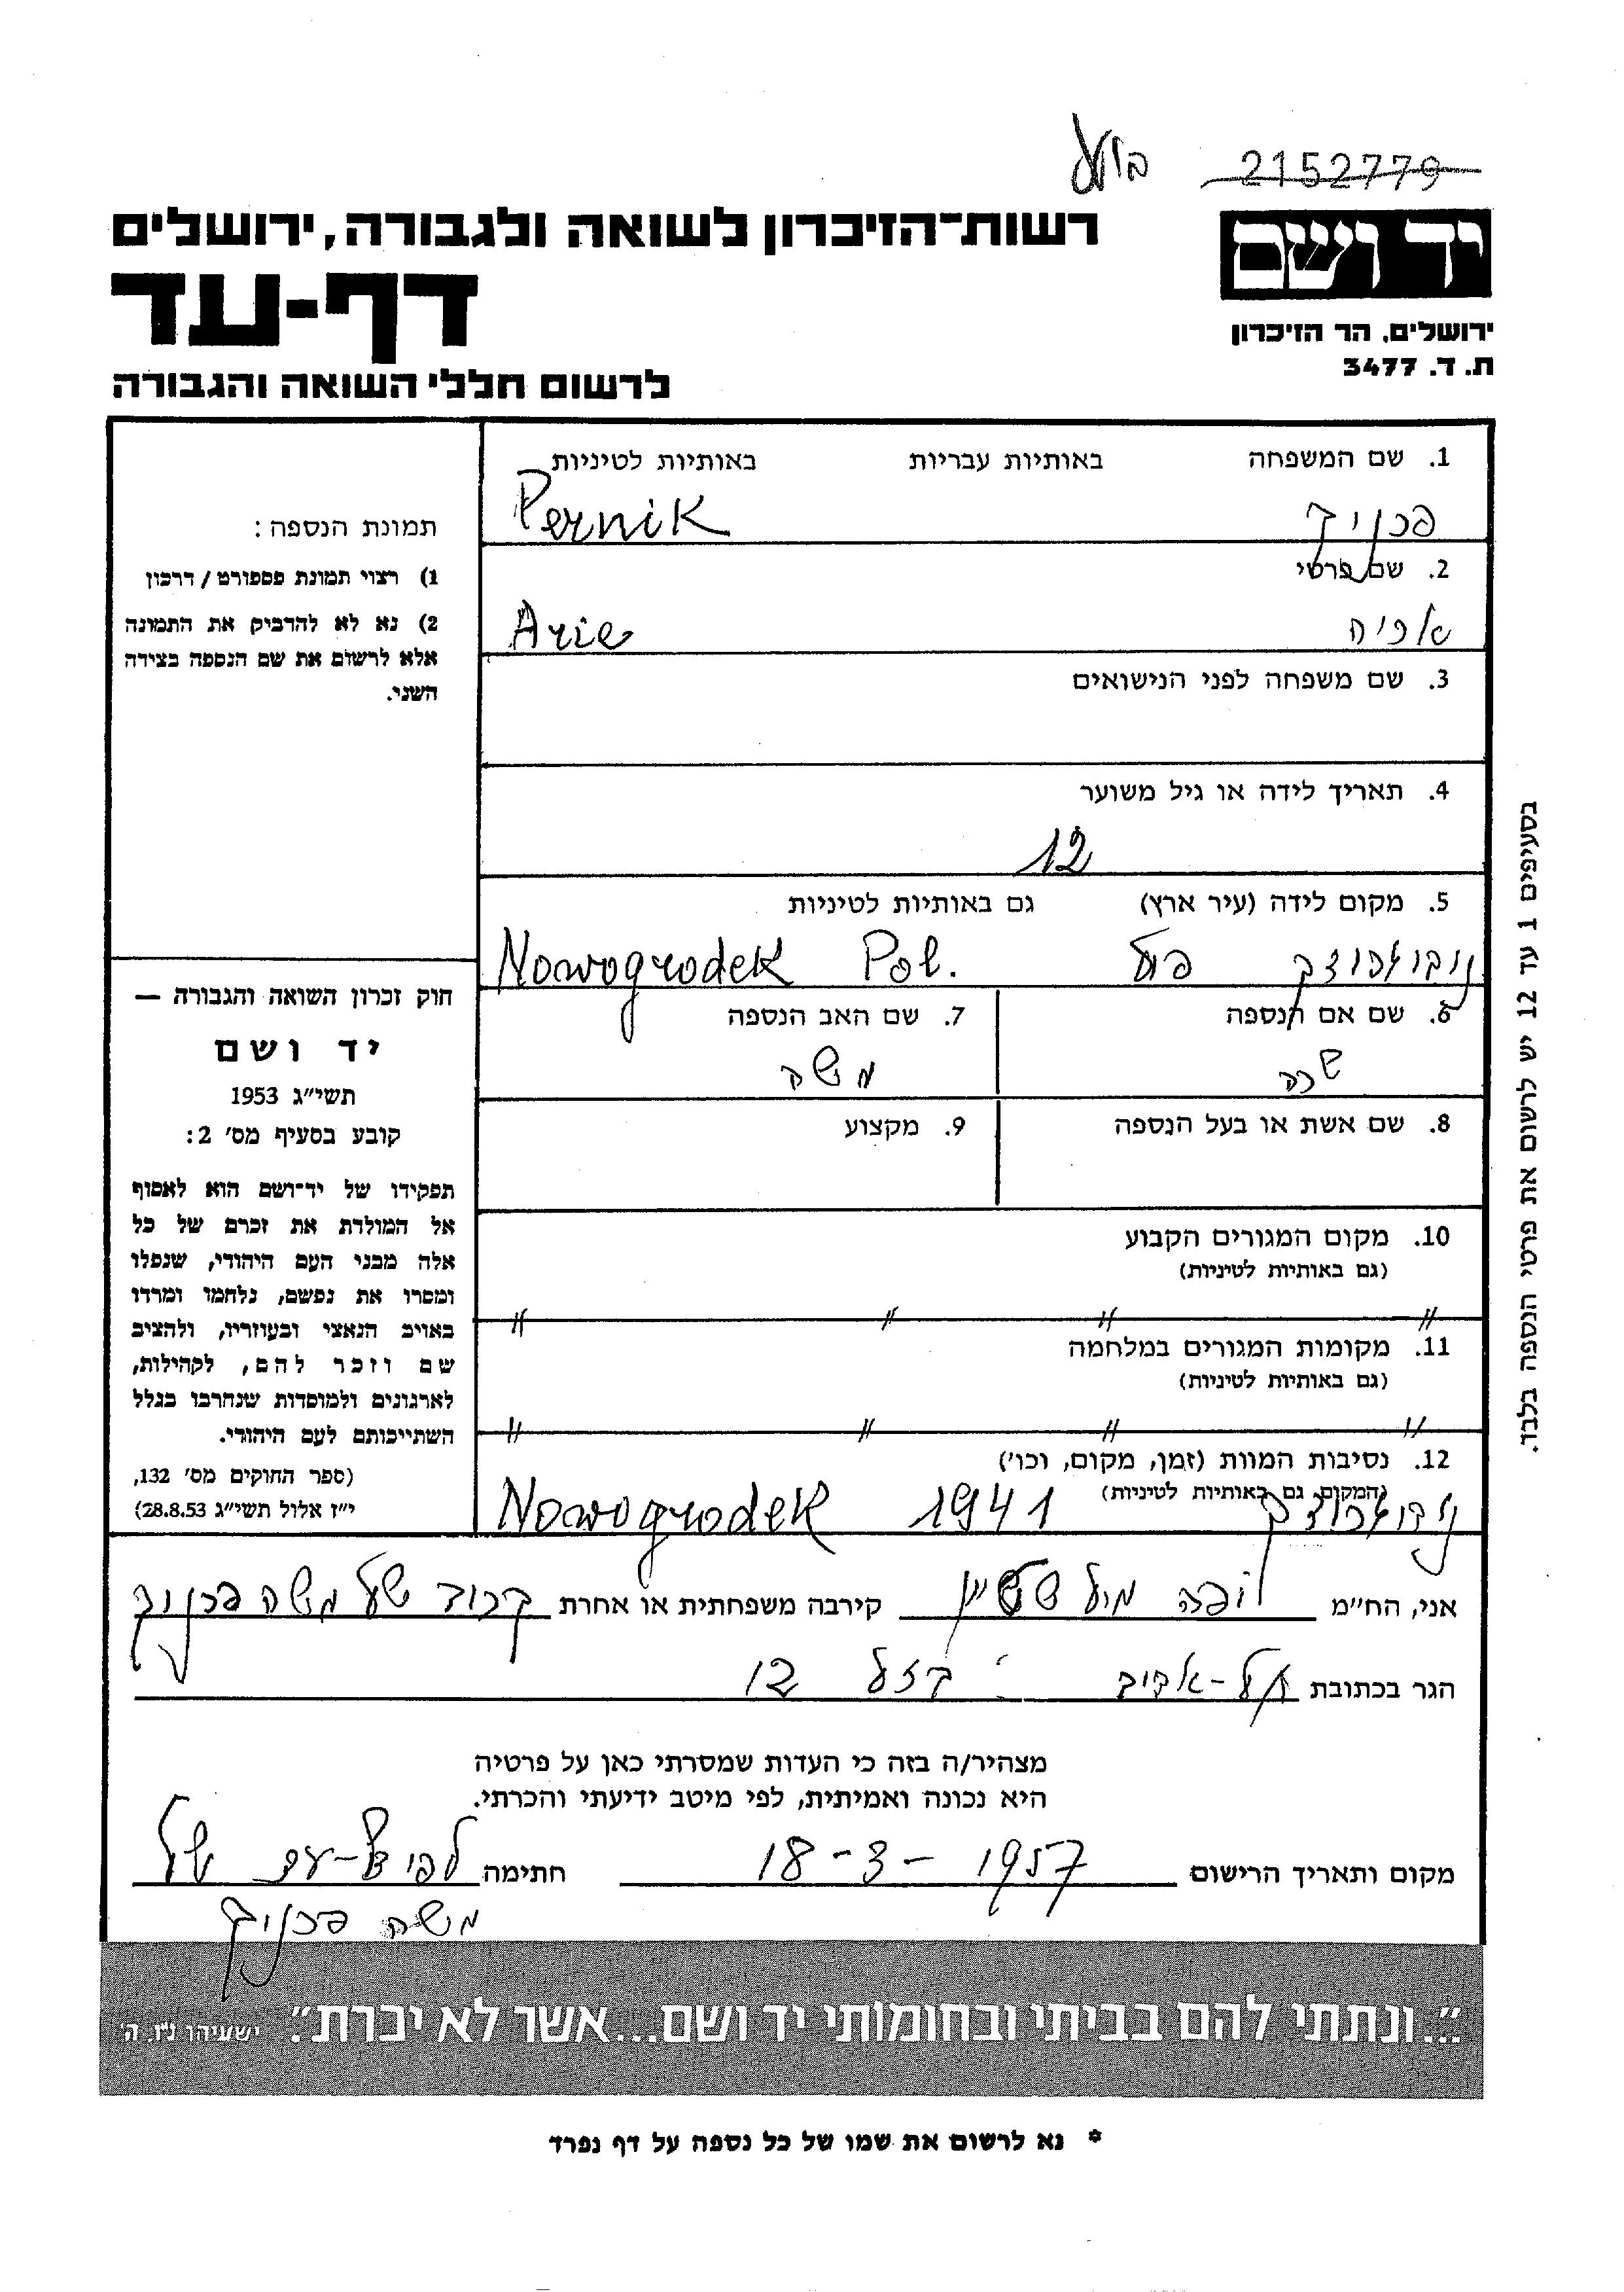 בוצע 2152779
יד ושם
ירושלים, הר הזיכרון
ת. ד. 3477
רשות־הזיכרון לשואה ולגבורה, ירושלים
דף-עד
לרשום חללי השואה והגבורה
1. שם המשפחה באותיות עבריות באותיות לטיניות
פרניק Pernik
2. שם פרטי
אריה Arie
3. שם משפחה לפני הנישואים
4. תאריך לידה או גיל משוער
12
5. מקום לידה (עיר ארץ) גם באותיות לטיניות
נובוגרודק פול Nowogrodek Pol.
6. שם אם הנספה 7. שם האב הנספה
שרה משה
8. שם אשת או בעל הנספה 9. מקצוע
10. מקום המגורים הקבוע
(גם באותיות לטיניות)
〃 〃 〃 〃
11. מקומות המגורים במלחמה
(גם באותיות לטיניות)
〃 〃 〃 〃
12. נסיבות המוות (זמן, מקום, וכו')
(המקום גם באותיות לטיניות)
נובוגרודק 1941 Nowogrodek
תמונת הנספה:
1) רצוי תמונת פספורט / דרכון
2) נא לא להדביק את התמונה
אלא לרשום את שם הנספה בצידה
השני.
חוק זכרון השואה והגבורה —
יד ושם
תשי"ג 1953
קובע בסעיף מס' 2:
תפקידו של יד־ושם הוא לאסוף
אל המולדת את זכרם של כל
אלה מבני העם היהודי, שנפלו
ומסרו את נפשם, נלחמו ומרדו
באויב הנאצי ובעוזריו, ולהציב
שם וזכר להם, לקהילות,
לארגונים ולמוסדות שנחרבו בגלל
השתייכותם לעם היהודי.
(ספר החוקים מס' 132,
י"ז אלול תשי"ג 28.8.53)
בסעיפים 1 עד 12 יש לרשום את פרטי הנספה בלבד.
אני, הח"מ קירבה משפחתית או אחרת קרוב של משה פרניק
הגר בכתובת תל-אביב 12
מצהיר/ה בזה כי העדות שמסרתי כאן על פרטיה
היא נכונה ואמיתית, לפי מיטב ידיעתי והכרתי.
מקום ותאריך הרישום 18-3-1957 חתימה לפי דף-עד של
משה פרניק
"...ונתתי להם בביתי ובחומותי יד ושם...אשר לא יכרת". ישעיהו נ"ו, ה'
* נא לרשום את שמו של כל נספה על דף נפרד